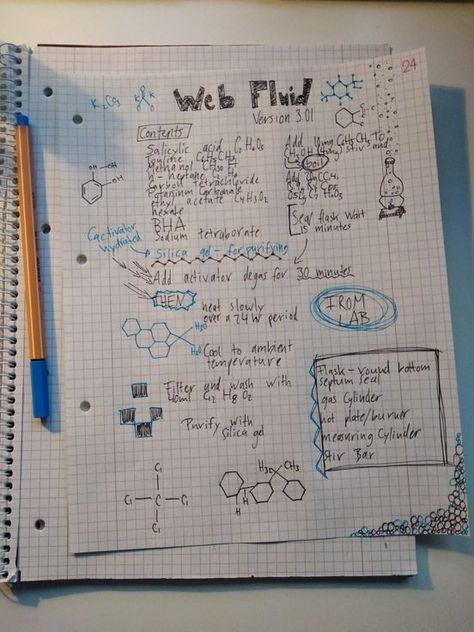 24
Web Fluid
Version 3.01
K₂CO₃
K K
Contents
Salicylic acid
Toluine C₆H₅CH₃
Methanol CH₃OH
n-heptane
Carbon tetrachloride
Potassium Carbonate
ethyl acetate C₄H₈O₂
hexane
BHA
Sodium tetraborate
Add 10mg C₆H₅CH₃ To
stir and
boil
Add
Seal flask wait
15 minutes
activator
hydrated
Silica gel - for purifying
Add activator degas for 30 minutes
THEN heat slowly
over a 24 hr period
H₂O
H₂O
FROM
LAB
Cool to ambient
temperature
Filter and wash with
40ml
Purify with
silica gel
Flask - round bottom
septum seal
gas cylinder
hot plate/burner
measuring cylinder
stir Bar
Cl
Cl C Cl
Cl
H₃C CH₃
H H